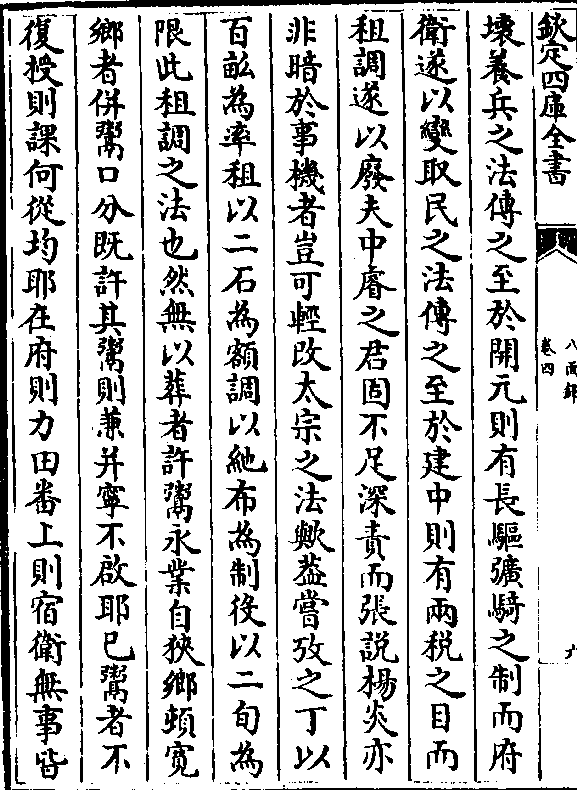 欽定四庫全書
八面鋒
卷四
九
壊養兵之法傳之至於開元則有長驅彍騎之制而府
衛遂以變取民之法傳之至於建中則有兩税之目而
租調遂以廢夫中睿之君固不足深責而張説楊炎亦
非暗於事機者豈可輕改太宗之法歟葢嘗攷之丁以
百畝為率租以二石為額調以絁布為制役以二旬為
限此租調之法也然無以葬者許鬻永業自狹鄉頓寛
鄉者併鬻口分既許其鬻則兼并寧不啟耶已鬻者不
復授則課何從均耶在府則力田番上則宿衛無事皆